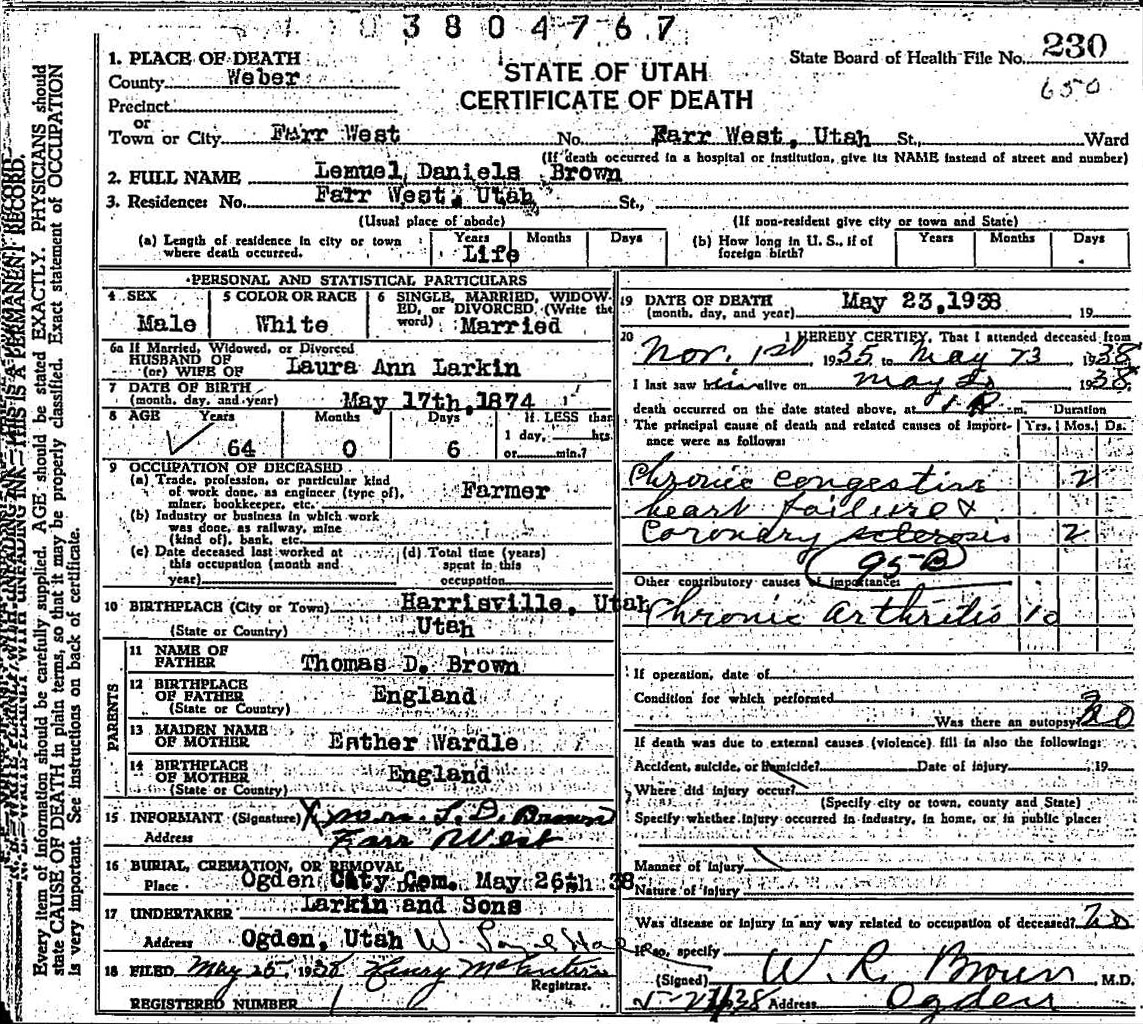 3 8 0 4 7 6 7
1. PLACE OF DEATH
County Weber
Precinct
or
Town or City Farr West No. Farr West, Utah St., Ward
STATE OF UTAH
CERTIFICATE OF DEATH
State Board of Health File No. 230
650
(If death occurred in a hospital or institution, give its NAME instead of street and number)
2. FULL NAME Lemuel Daniels Brown
3. Residence: No. Farr West, Utah St.,
(Usual place of abode) (If non-resident give city or town and State)
(a) Length of residence in city or town where death occurred. Years Months Days
Life
(b) How long in U. S., if of foreign birth? Years Months Days
PERSONAL AND STATISTICAL PARTICULARS
4 SEX Male
5 COLOR OR RACE White
6 SINGLE, MARRIED, WIDOW-
ED, or DIVORCED (Write the
word) Married
6a If Married, Widowed, or Divorced
HUSBAND OF
(or) WIFE OF Laura Ann Larkin
7 DATE OF BIRTH
(month, day, and year) May 17th, 1874
8 AGE Years Months Days If LESS than
64 0 6 1 day, hrs.
or min.?
9 OCCUPATION OF DECEASED
(a) Trade, profession, or particular kind
of work done, as engineer (type of),
miner, bookkeeper, etc. Farmer
(b) Industry or business in which work
was done, as railway, mine
(kind of), bank, etc.
(c) Date deceased last worked at
this occupation (month and
year)
(d) Total time (years)
spent in this
occupation
10 BIRTHPLACE (City or Town) Harrisville, Utah
(State or Country) Utah
PARENTS
11 NAME OF
FATHER Thomas D. Brown
12 BIRTHPLACE
OF FATHER England
(State or Country)
13 MAIDEN NAME
OF MOTHER Esther Wardle
14 BIRTHPLACE
OF MOTHER England
(State or Country)
15 INFORMANT (Signature) X Mrs. L. D. Brown
Address Farr West
16 BURIAL, CREMATION, OR REMOVAL
Place Ogden City Cem. Date May 26th 38
17 UNDERTAKER Larkin and Sons
Address Ogden, Utah W.
18 FILED May 25, 1938 Henry
Registrar.
REGISTERED NUMBER 1
19 DATE OF DEATH May 23, 1938
(month, day, and year) 19
20 I HEREBY CERTIFY, That I attended deceased from
Nov. 1st 1935 to May 23 1938
I last saw him alive on May 20 1938
death occurred on the date stated above, at 1 P m. Duration
The principal cause of death and related causes of import-
ance were as follows: Yrs. Mos. Ds.
Chronic Congestive 2
heart failure &
Coronary sclerosis 2
95-B
Other contributory causes of importance:
Chronic arthritis 10
If operation, date of
Condition for which performed
Was there an autopsy? No
If death was due to external causes (violence) fill in also the following:
Accident, suicide, or homicide? Date of injury , 19
Where did injury occur?
(Specify city or town, county and State)
Specify whether injury occurred in industry, in home, or in public place:
Manner of injury
Nature of injury
Was disease or injury in any way related to occupation of deceased? No
If so, specify
(Signed) W. R. Brown , M.D.
Address Ogden
Every item of information should be carefully supplied. AGE should be stated EXACTLY. PHYSICIANS should
state CAUSE OF DEATH in plain terms, so that it may be properly classified. Exact statement of OCCUPATION
is very important. See instructions on back of certificate.